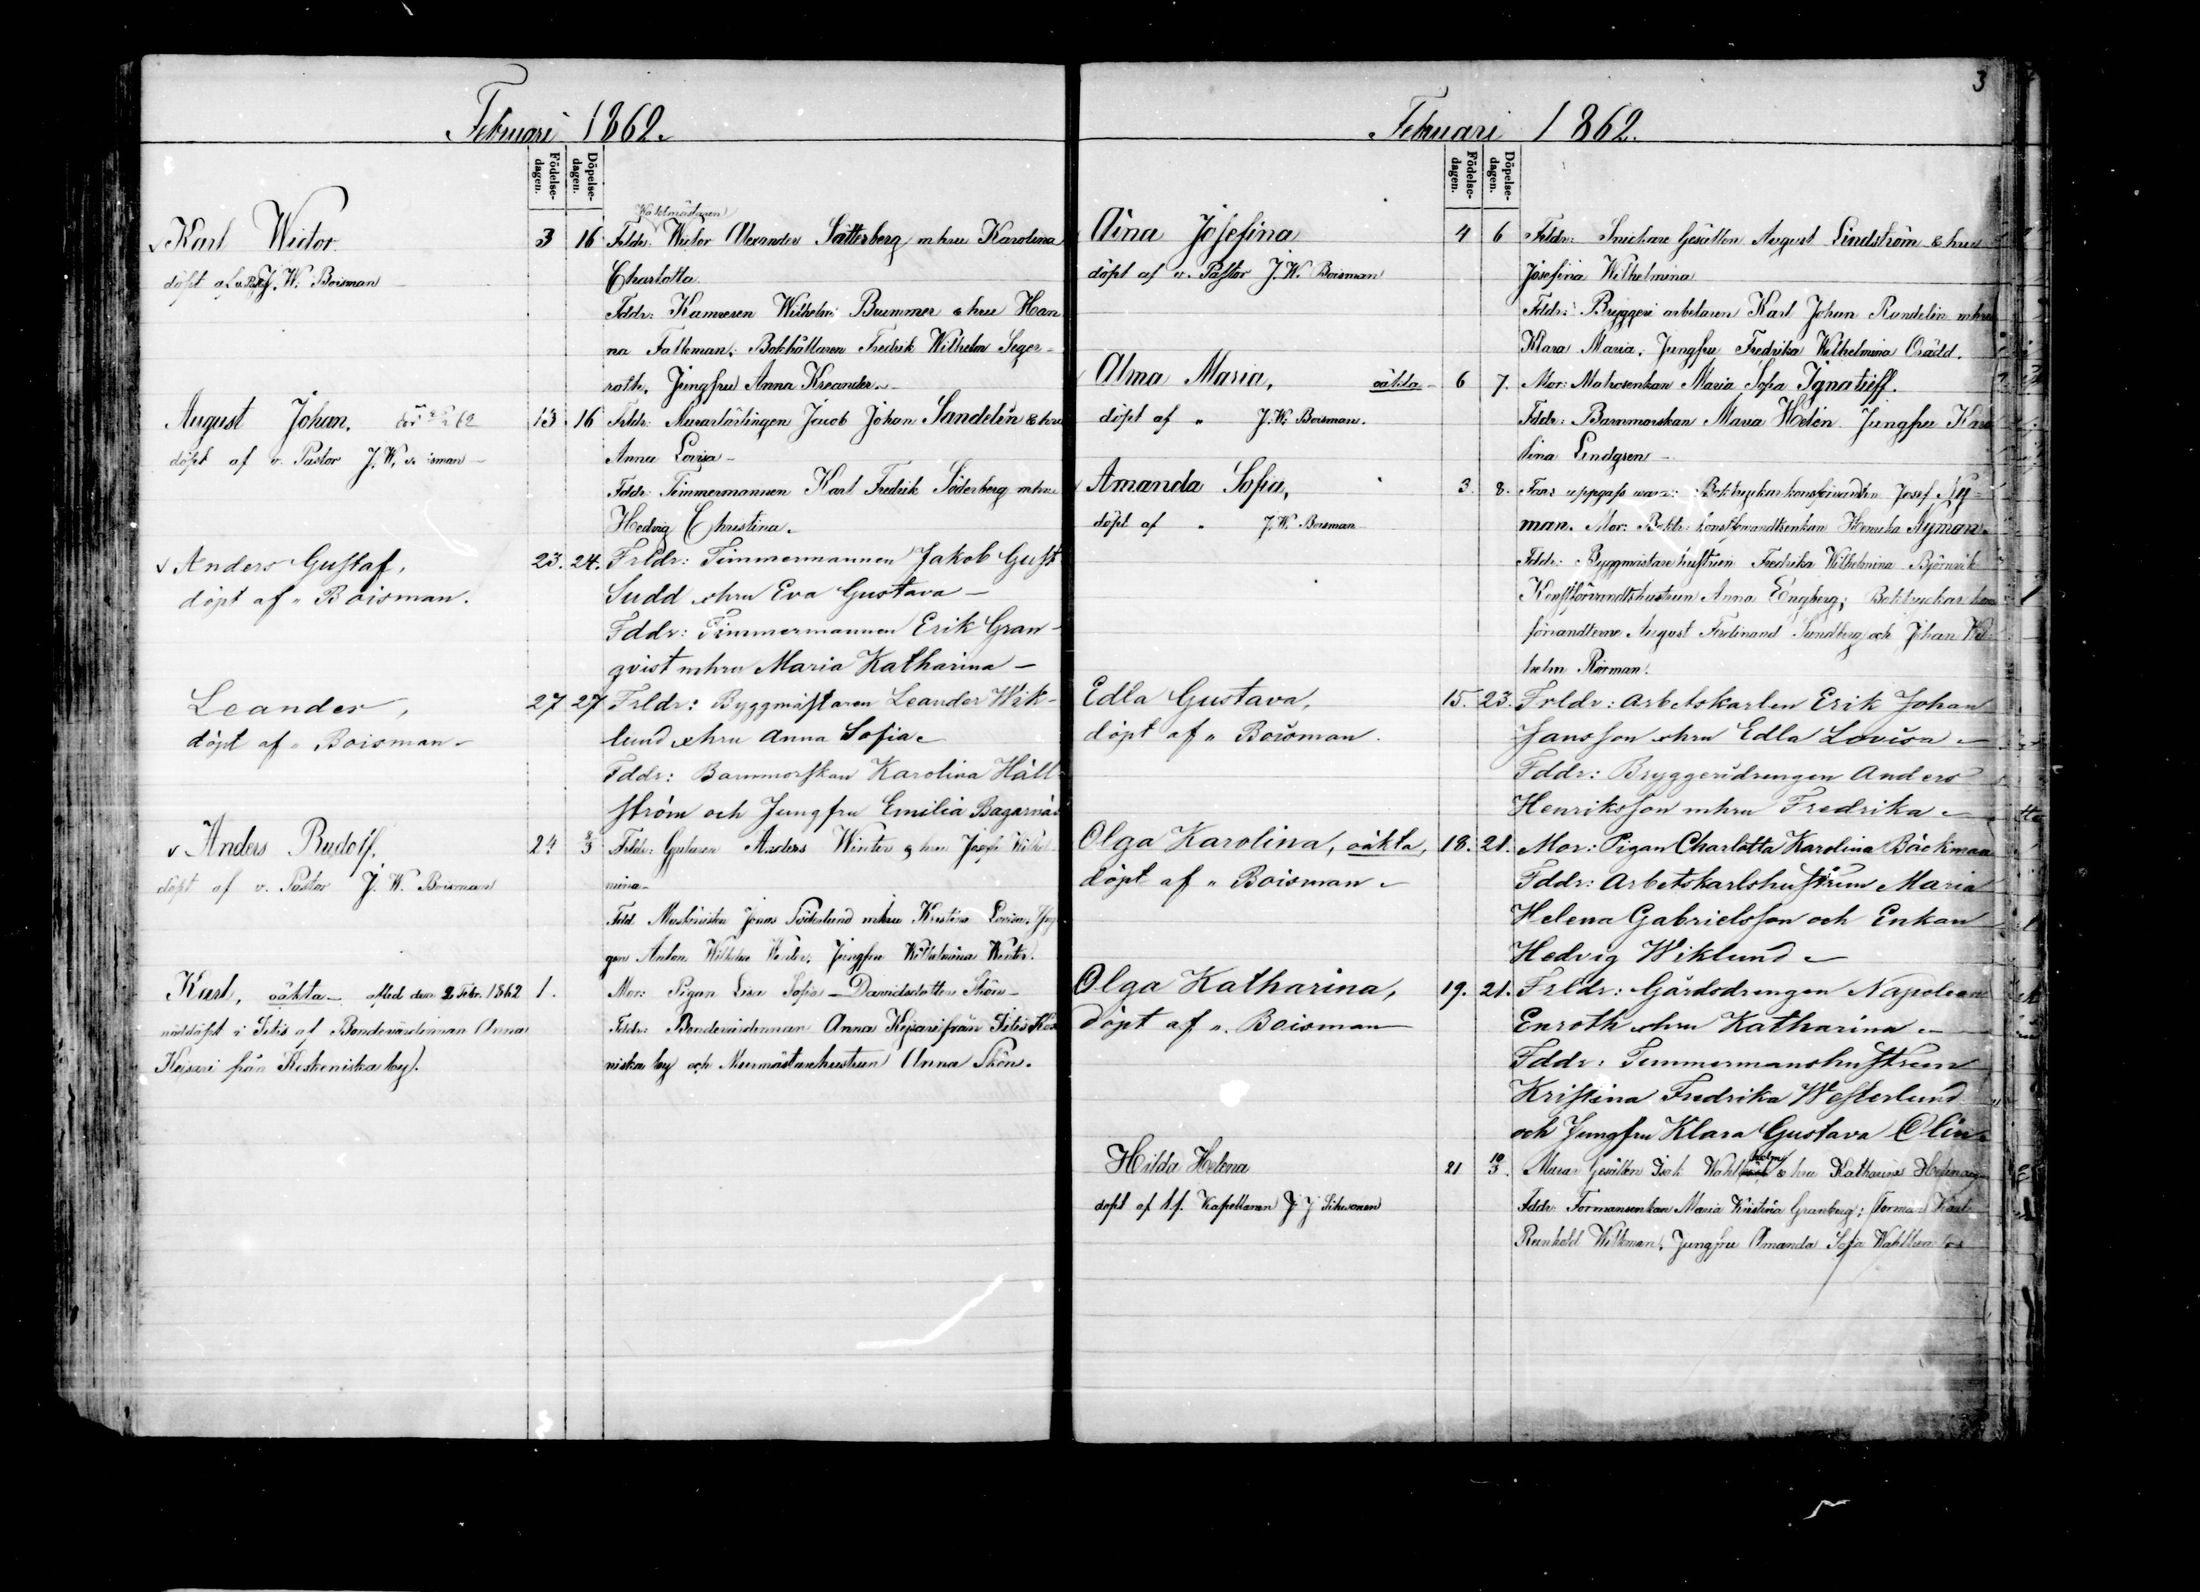 Februari 1862.
Födelse-dagen.
Döpelse-dagen.
Karl Wictor
döpt af v. Past. J. W. Boisman
3 16 Frldr: Wictor Alexander Sätterberg m hru Karolina
Charlotta
Fddr: Kamreren Wilhelm Brummer o hru Han
na Falleman, Bokhållaren Fredrik Wilhelm Seger-
rath, Jungfru Anna Kreander.
August Johan,
döpt af v. Pastor J. W.
13 16 Frldr: Murarlärlingen Jacob Johan Sandelin & hru
Anna Lovisa
Fddr: Timmermannen Karl Fredrik Söderberg m hru
Hedvig Christina.
Anders Gustaf,
döpt af " Boisman.
23. 24. Frldr: Timmermannen Jakob Gust
Sudd o hru Eva Gustava
Fddr: Timmermannen Erik Gran-
qvist m hru Maria Katharina
Leander,
döpt af " Boisman
27 27 Frldr: Byggmästaren Leander Wik-
lund o hru Anna Sofia
Fddr: Barnmorskan Karolina Häll
ström och Jungfru Emilia Bagarnäs
Anders Rudolf.
döpt af v. Pastor J. W. Boisman
24 8/3 Frldr: Gjutaren Anders Winter & hru Josefa Wilhel
mina
Fdd. Maskinisten Jonas Söderlund m hru Kristina Lovisa,
Anton Wilhelm Winter, Jungfru Wilhelmina Winter.
Karl, oäkta afled den 2 Febr. 1862
nöddöpt i Letis af Bondevärdinnan Anna
Keisari från Keskeniska by.
1. Mor: Pigan Lisa Sofia Davidsdotter Thörn
Fddr: Bondevärdinnan Anna Keisari från Letis Kes
niska by och Murmästarehustrun Anna Thörn.
3
Februari 1862.
Födelse-dagen.
Döpelse-dagen.
Aina Josefina
döpt af v. Pastor J. W. Boisman
4 6 Frldr: Snickare Gesällen August Lindström & hru
Josefina Wilhelmina
Fddr: Bryggeri arbetaren Karl Johan Rundelin m hru
Klara Maria, Jungfru Fredrika Wilhelmina Orädd.
Alma Maria, oäkta
döpt af " J. W. Boisman.
6 7. Mor: Matrosenkan Maria Sofia Ignatieff.
Fddr: Barnmorskan Maria Helén Jungfru Karo
lina Lindgren
Amanda Sofia,
döpt af " J. W. Boisman
3. 8. Far: uppgafs vara: Boktryckarkonstförvandten Josef Ny-
man. Mor: Boktr. konstförvandtsenkan Henrika Nyman
Fddr: Byggmästarehustrun Fredrika Wilhelmina Björnvik
Konstförvandtshustrun Anna Engberg; Boktryckar kons
förvandterne August Ferdinand Sundberg och Johan Wil
helm Rörman.
Edla Gustava,
döpt af " Boisman.
15. 23. Frldr: Arbetskarlen Erik Johan
Jansson o hru Edla Lovisa
Fddr: Bryggeridrengen Anders
Henriksson m hru Fredrika
Olga Karolina, oäkta,
döpt af " Boisman
18. 21. Mor: Pigan Charlotta Karolina Bäckman
Fddr: Arbetskarlshustrun Maria
Helena Gabrielsson och Enkan
Hedvig Wiklund
Olga Katharina,
döpt af " Boisman
19. 21. Frldr: Gårdsdrengen Napolean
Enroth o hru Katharina
Fddr: Timmermanshustrun
Kristina Fredrika Westerlund
och Jungfru Klara Gustava Olin
Hilda Helena
döpt af t.f. Kapellanen J. J. Sihvonen
21 10/3. Murar Gesällen Isak Wahlholm & hru Katharina
Fddr: Formansenkan Maria Kristina Granberg; Forman Karl
Reinhold Willman, Jungfru Amanda Sofia